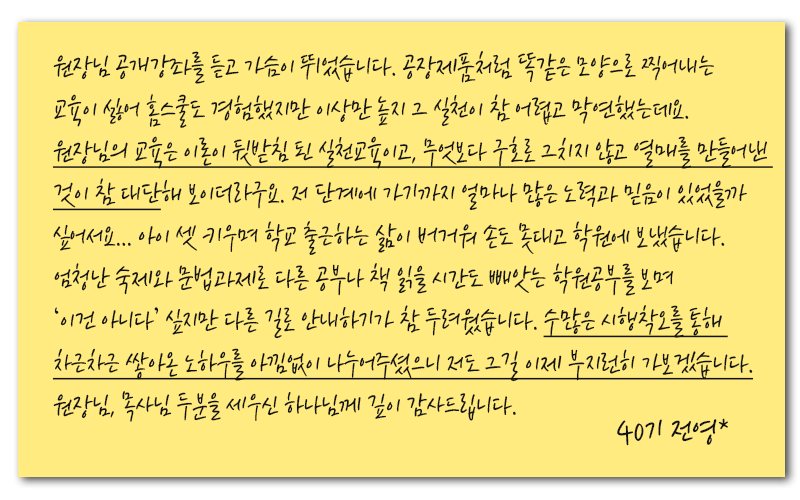 원장님 공개강좌를 듣고 가슴이 뛰었습니다. 공장제품처럼 똑같은 모양으로 찍어내는
교육이 싫어 홈스쿨도 경험했지만 이상만 높지 그 실천이 참 어렵고 막연했는데요.
원장님의 교육은 이론이 뒷받침 된 실천교육이고, 무엇보다 구호로 그치지 않고 열매를 만들어낸
것이 참 대단해 보이더라구요. 저 단계에 가기까지 얼마나 많은 노력과 믿음이 있었을까
싶어서요... 아이 셋 키우며 학교 출근하는 삶이 버거워 손도 못대고 학원에 보냈습니다.
엄청난 숙제와 문법과제로 다른 공부나 책 읽을 시간도 빼앗는 학원공부를 보며
'이건 아니다' 싶지만 다른 길로 안내하기가 참 두려웠습니다. 수많은 시행착오를 통해
차근차근 쌓아온 노하우를 아낌없이 나누어주셨으니 저도 그길 이제 부지런히 가보겠습니다.
원장님, 목사님 두분을 세우신 하나님께 깊이 감사드립니다.
40기 전영*